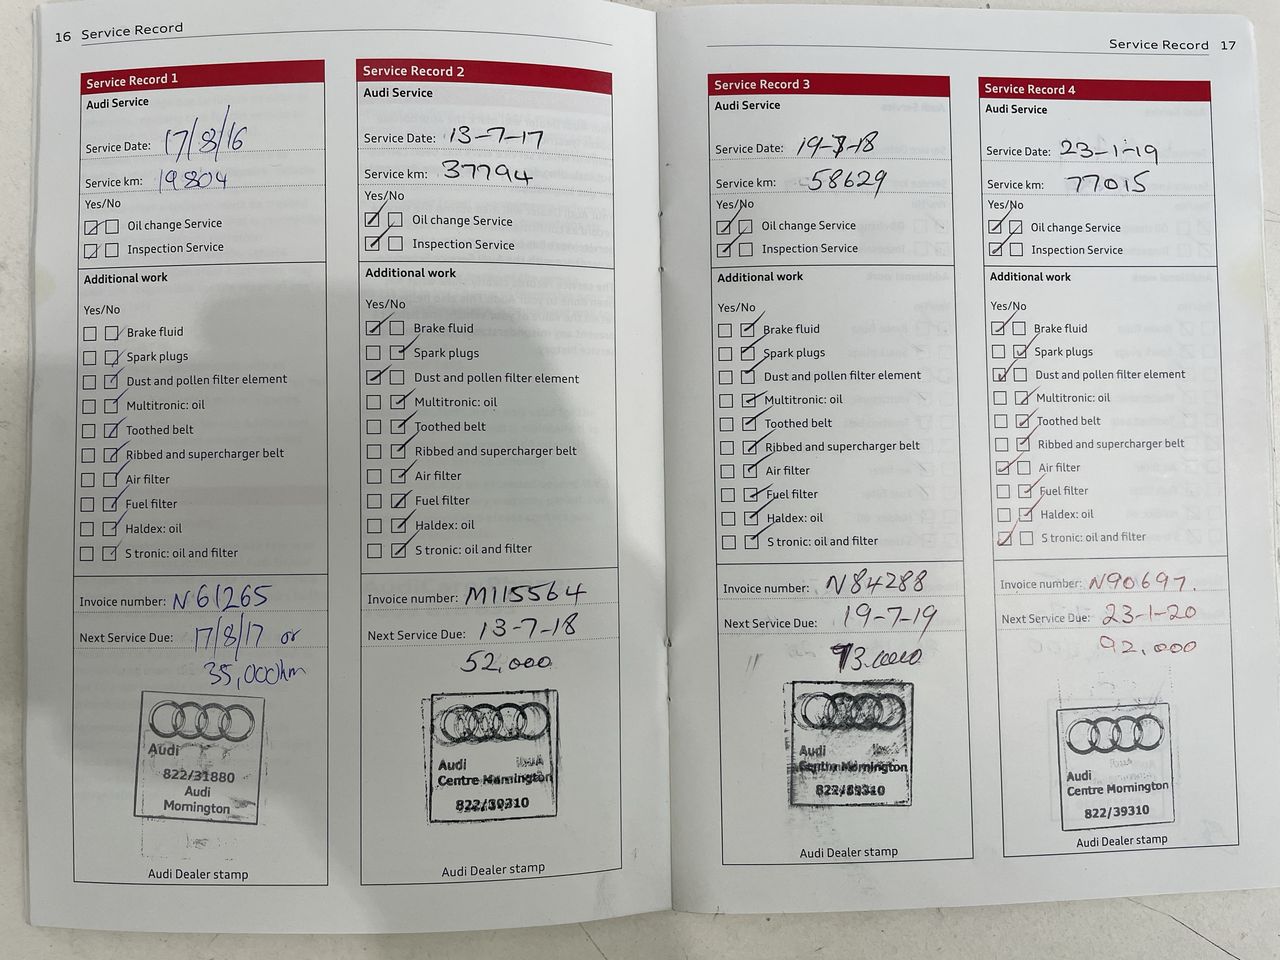 16 Service Record
Service Record 1
Audi Service
Service Date: 17/8/16
Service km: 19804
Yes/No
Oil change Service
Inspection Service
Additional work
Yes/No
Brake fluid
Spark plugs
Dust and pollen filter element
Multitronic: oil
Toothed belt
Ribbed and supercharger belt
Air filter
Fuel filter
Haldex: oil
S tronic: oil and filter
Invoice number: N61265
Next Service Due: 17/8/17 or
35,000km
Audi
822/31880
Audi
Mornington
Audi Dealer stamp
Service Record 2
Audi Service
Service Date: 13-7-17
Service km: 37794
Yes/No
Oil change Service
Inspection Service
Additional work
Yes/No
Brake fluid
Spark plugs
Dust and pollen filter element
Multitronic: oil
Toothed belt
Ribbed and supercharger belt
Air filter
Fuel filter
Haldex: oil
S tronic: oil and filter
Invoice number: M115564
Next Service Due: 13-7-18
52,000
Audi
Centre Mornington
822/39310
Audi Dealer stamp
Service Record 17
Service Record 3
Audi Service
Service Date: 19-7-18
Service km: 58629
Yes/No
Oil change Service
Inspection Service
Additional work
Yes/No
Brake fluid
Spark plugs
Dust and pollen filter element
Multitronic: oil
Toothed belt
Ribbed and supercharger belt
Air filter
Fuel filter
Haldex: oil
S tronic: oil and filter
Invoice number: N84288
Next Service Due: 19-7-19
73.000
Audi
Centre Mornington
822/39310
Audi Dealer stamp
Service Record 4
Audi Service
Service Date: 23-1-19
Service km: 77015
Yes/No
Oil change Service
Inspection Service
Additional work
Yes/No
Brake fluid
Spark plugs
Dust and pollen filter element
Multitronic: oil
Toothed belt
Ribbed and supercharger belt
Air filter
Fuel filter
Haldex: oil
S tronic: oil and filter
Invoice number: N90697.
Next Service Due: 23-1-20
92,000
Audi
Centre Mornington
822/39310
Audi Dealer stamp